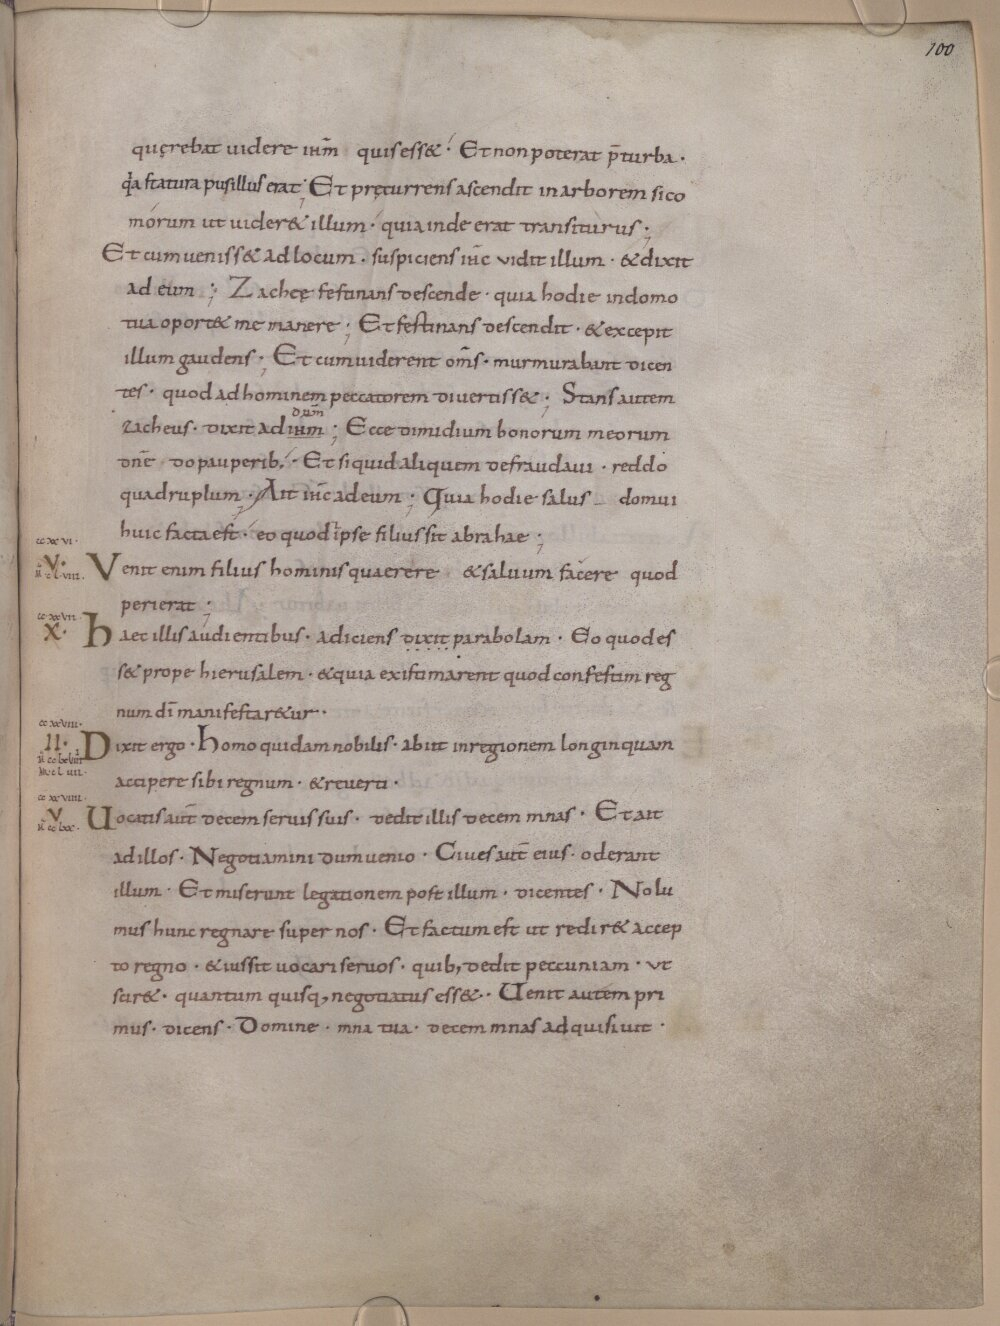 100
quęrebat uidere ihm̄ quis ess& · Et non poterat p̄ turba ·
qa statura pusillus erat ; Et pręcurrens ascendit in arborem sico
morum ut uider& illum · quia inde erat transiturus ;
Et cumueniss& ad locum · suspiciens ih̄c vidit illum · & dixit
ad eum ; Zachęe festinans descende · quia hodie in domo
tua oport& me manere ; Et festinans descendit · & excepit
illum gaudens ; Et cum uiderent om̄s · murmurabant dicen
tes · quod ad hominem peccatorem diuertiss& ; Stans autem
dn̄m
zacheus · dixit ad ihm ; Ecce dimidium bonorum meorum
dn̄e do pauperib; · Et si quid aliquem defraudaui · reddo
quadruplum ; Ait ih̄c ad eum ; Quia hodie salus domui
huic facta est · eo quod ipse filius sit abrahae ;
cc xx vi ·
V · Venit enim filius hominis quaerere & saluum facere quod
perierat ;
cc xx vii ·
X · haec illis audientibus · adiciens dixit parabolam · Eo quod es
s& prope hierusalem · & quia existimarent quod confestim reg
num dī manifestar&ur ·
cc xx viii ·
II · Dixit ergo · homo quidam nobilis · abiit in regionem longinquam
accipere sibi regnum · & reuerti ·
cc xx viiii ·
V Uocatis aut̄ decem seruis suis · dedit illis decem mnas · Et ait
ad illos · Negotiamini dum uenio · Ciues aut̄ eius · oderant
illum · Et miserunt legationem post illum · dicentes · Nolu
mus hunc regnare super nos · Et factum est ut redir& accep
to regno · & iussit uocari seruos · quib; dedit peccuniam · ut
scir& · quantum quisq; negotiatus ess& · Uenit autem pri
mus · dicens · Domine · mna tua · decem mnas adquisiuit ·